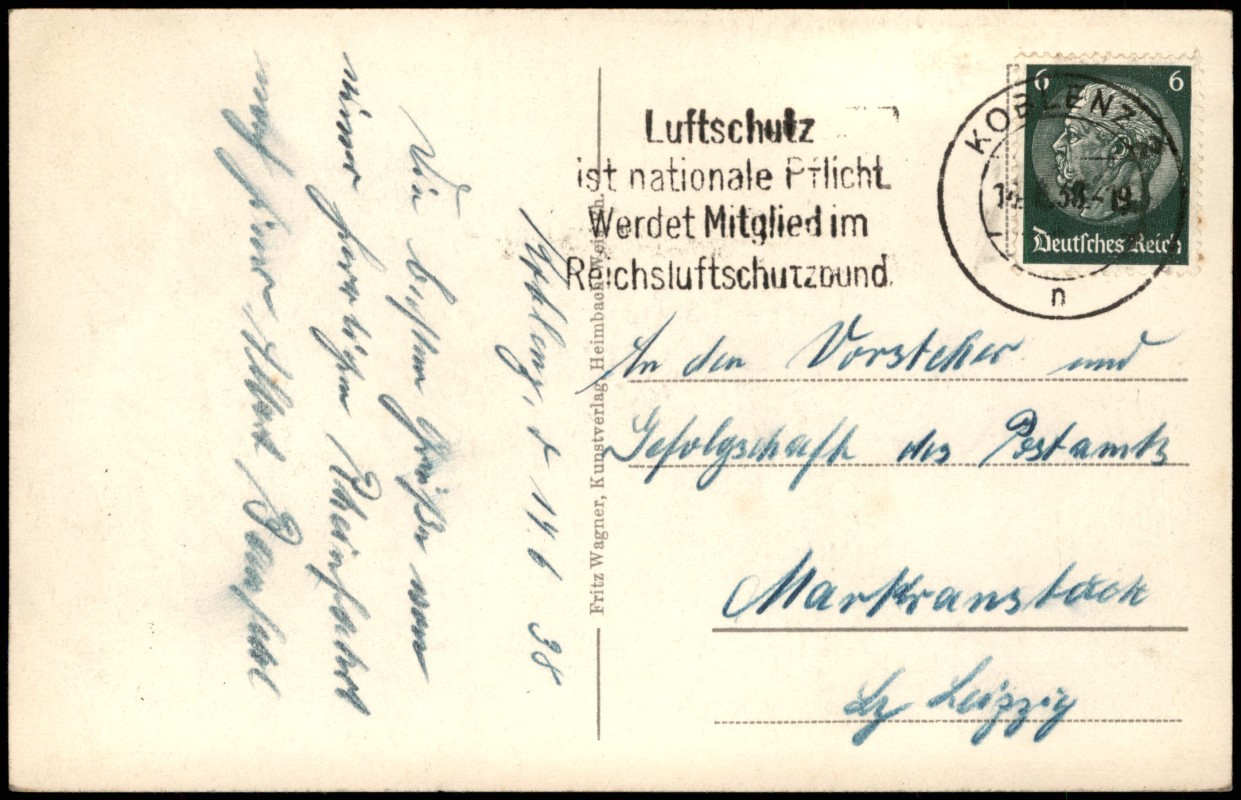 Koblenz, d 14.6 38
Die besten Grüße von
einer herrlichen Rheinfahrt
Fritz Wagner, Kunstverlag, Heimbach-Weis
Luftschutz
ist nationale Pflicht
Werdet Mitglied im
Reichsluftschutzbund.
KOBLENZ
38.-19
n
6 6
Deutsches Reich
An den Vorsteher und
Gefolgschaft des Postamts
Markranstädt
Bz Leipzig